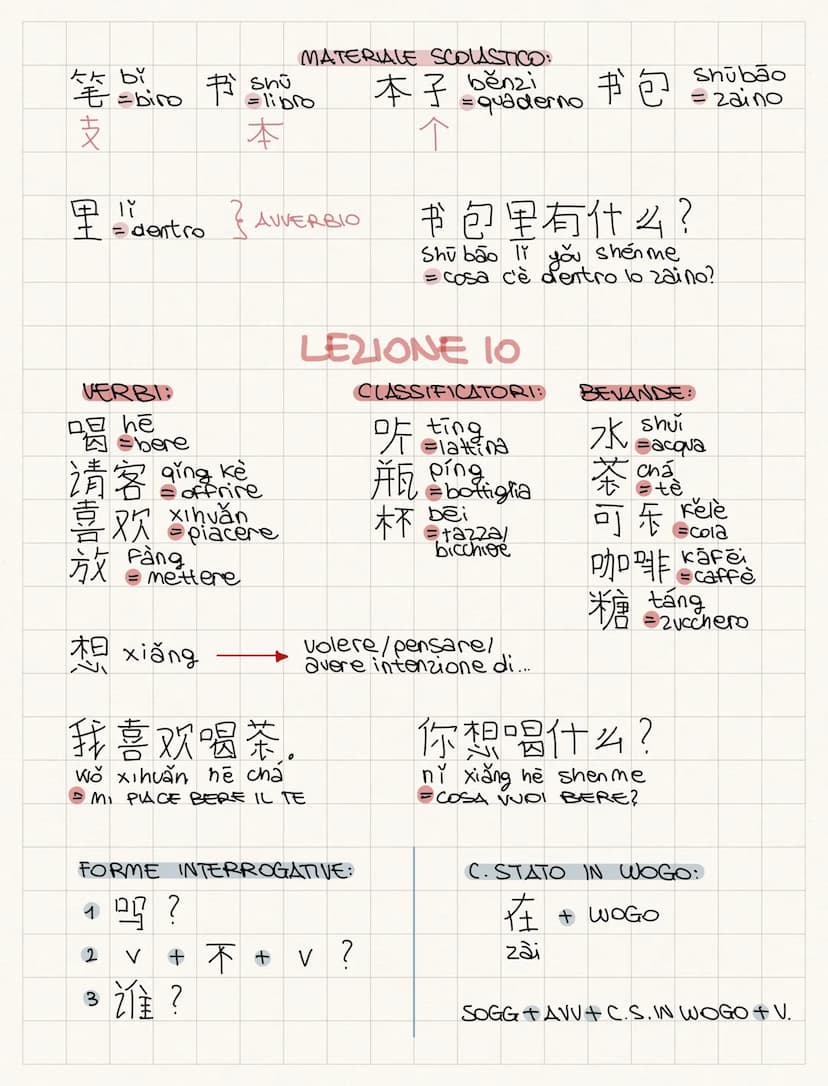 MATERIALE SCOLASTICO:
笔 bǐ =biro 书 shū =libro 本子 běnzi =quaderno 书包 shūbāo =zaino
支 本 个
里 lǐ =dentro } AVVERBIO
书包里有什么?
shū bāo lǐ yǒu shénme
=cosa c'è dentro lo zaino?
LEZIONE 10
VERBI: CLASSIFICATORI: BEVANDE:
喝 hē =bere 听 tīng =lattina 水 shuǐ =acqua
请客 qǐng kè =offrire 瓶 píng =bottiglia 茶 chá =tè
喜欢 xıhuăn =piacere 杯 bēi =tazza/bicchiere 可乐 kělè =cola
放 Fàng =mettere 咖啡 kāfēi =caffè
糖 táng =zucchero
想 xiǎng → volere/pensare/
avere intenzione di...
我喜欢喝茶. 你想喝什么?
wǒ xıhuăn hē chá nǐ xiǎng hē shenme
=MI PIACE BERE IL TE =COSA VUOI BERE?
FORME INTERROGATIVE: C. STATO IN WOGO:
1 吗? 在 + WOGO
zài
2 V + 不 + V ?
3 谁?
SOGG+AVV+C.S.IN WOGO+V.